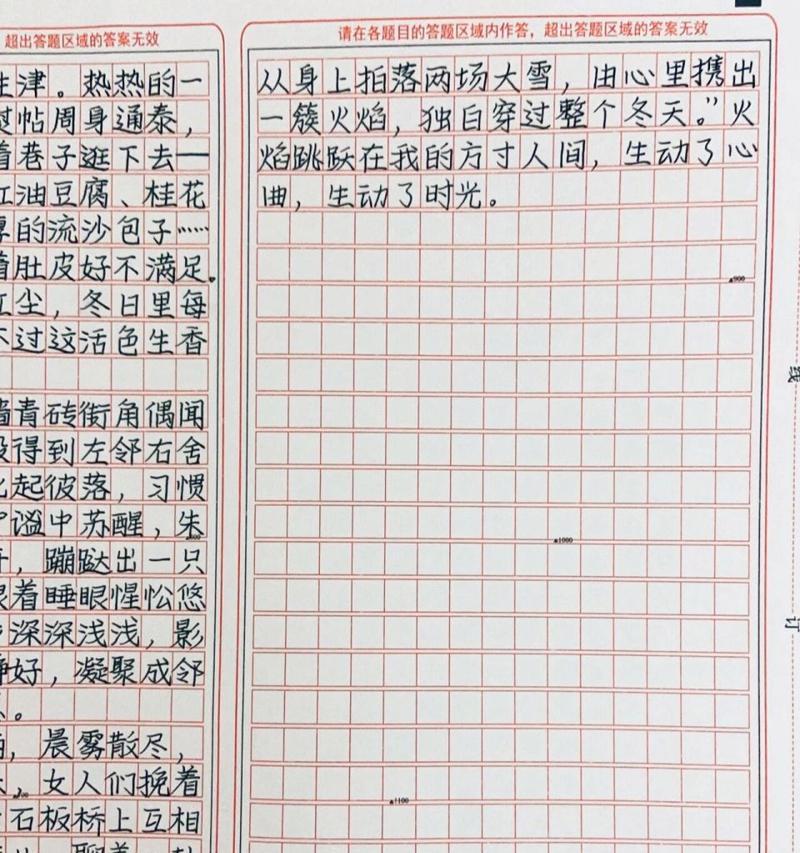 超出答题区域的答案无效
生津。热热的一
熨帖周身通泰，
着巷子逛下去——
红油豆腐、桂花
厚的流沙包子……
着肚皮好不满足。
红尘，冬日里每
不过这活色生香
墙青砖街角偶闻
得到左邻右舍
起彼落，习惯
谧中苏醒，朱
，蹦跶出一只
着睡眼惺忪悠
深深浅浅，影
静好，凝聚成邻
。
，晨雾散尽，
。女人们挽着
石板桥上互相
聊着
请在各题目的答题区域内作答，超出答题区域的答案无效
从身上拍落两场大雪，由心里携出
一簇火焰，独自穿过整个冬天。”火
焰跳跃在我的方寸人间，生动了心
曲，生动了时光。
▲900
▲1000
▲1100
线
订